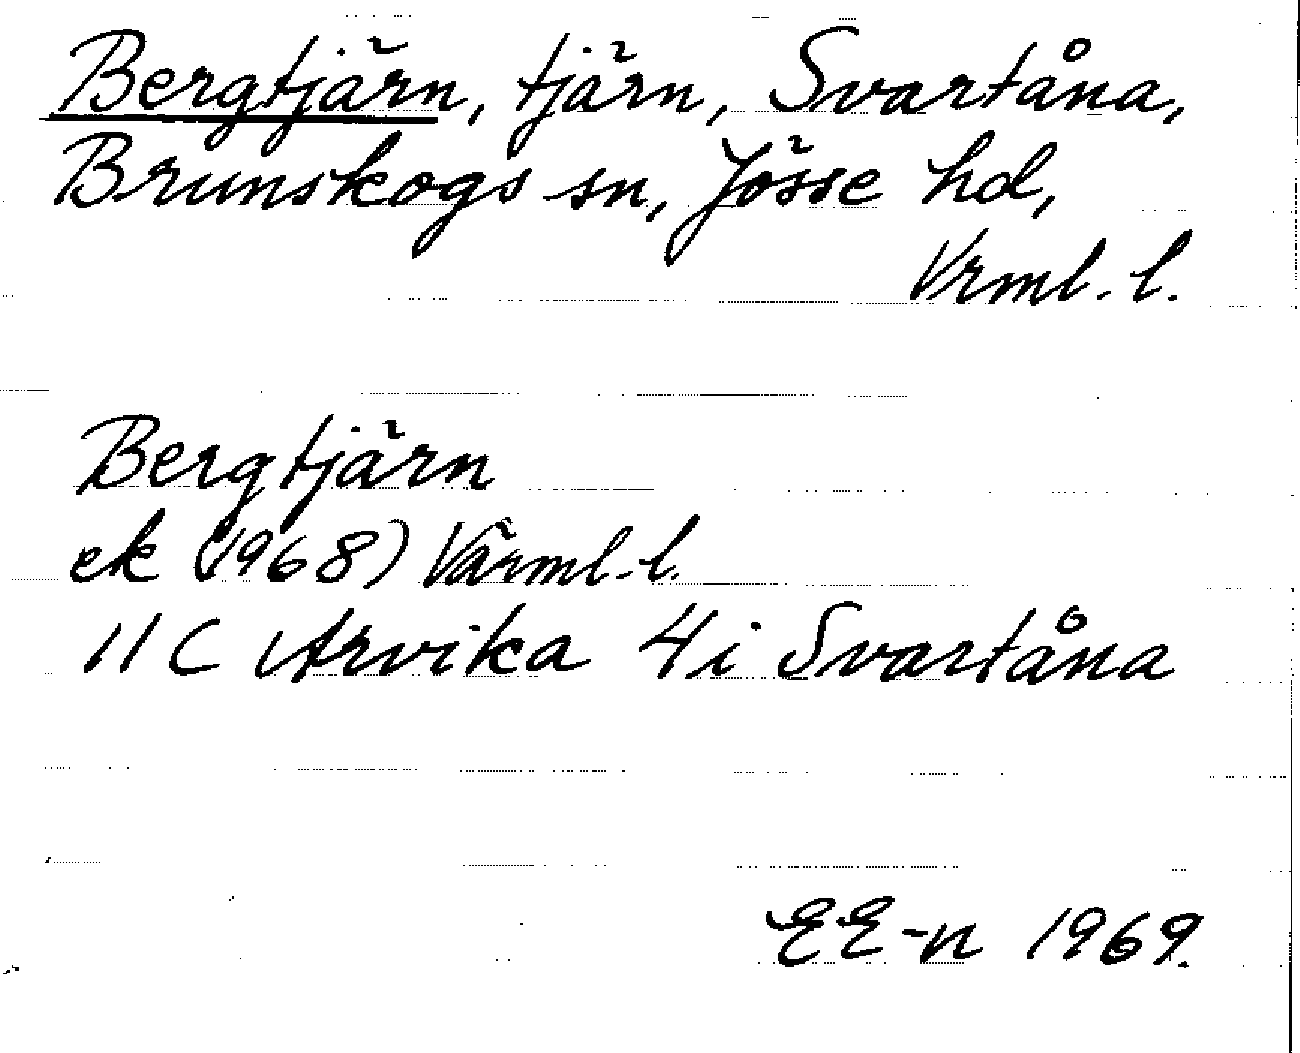 Bergtjärn, tjärn, Svartåna,
Brunskogs sn, Jösse hd,
Vrml. l.
Bergtjärn
ek (1968) Värml. l.
11 C Arvika 4i Svartåna
EE-n 1969.